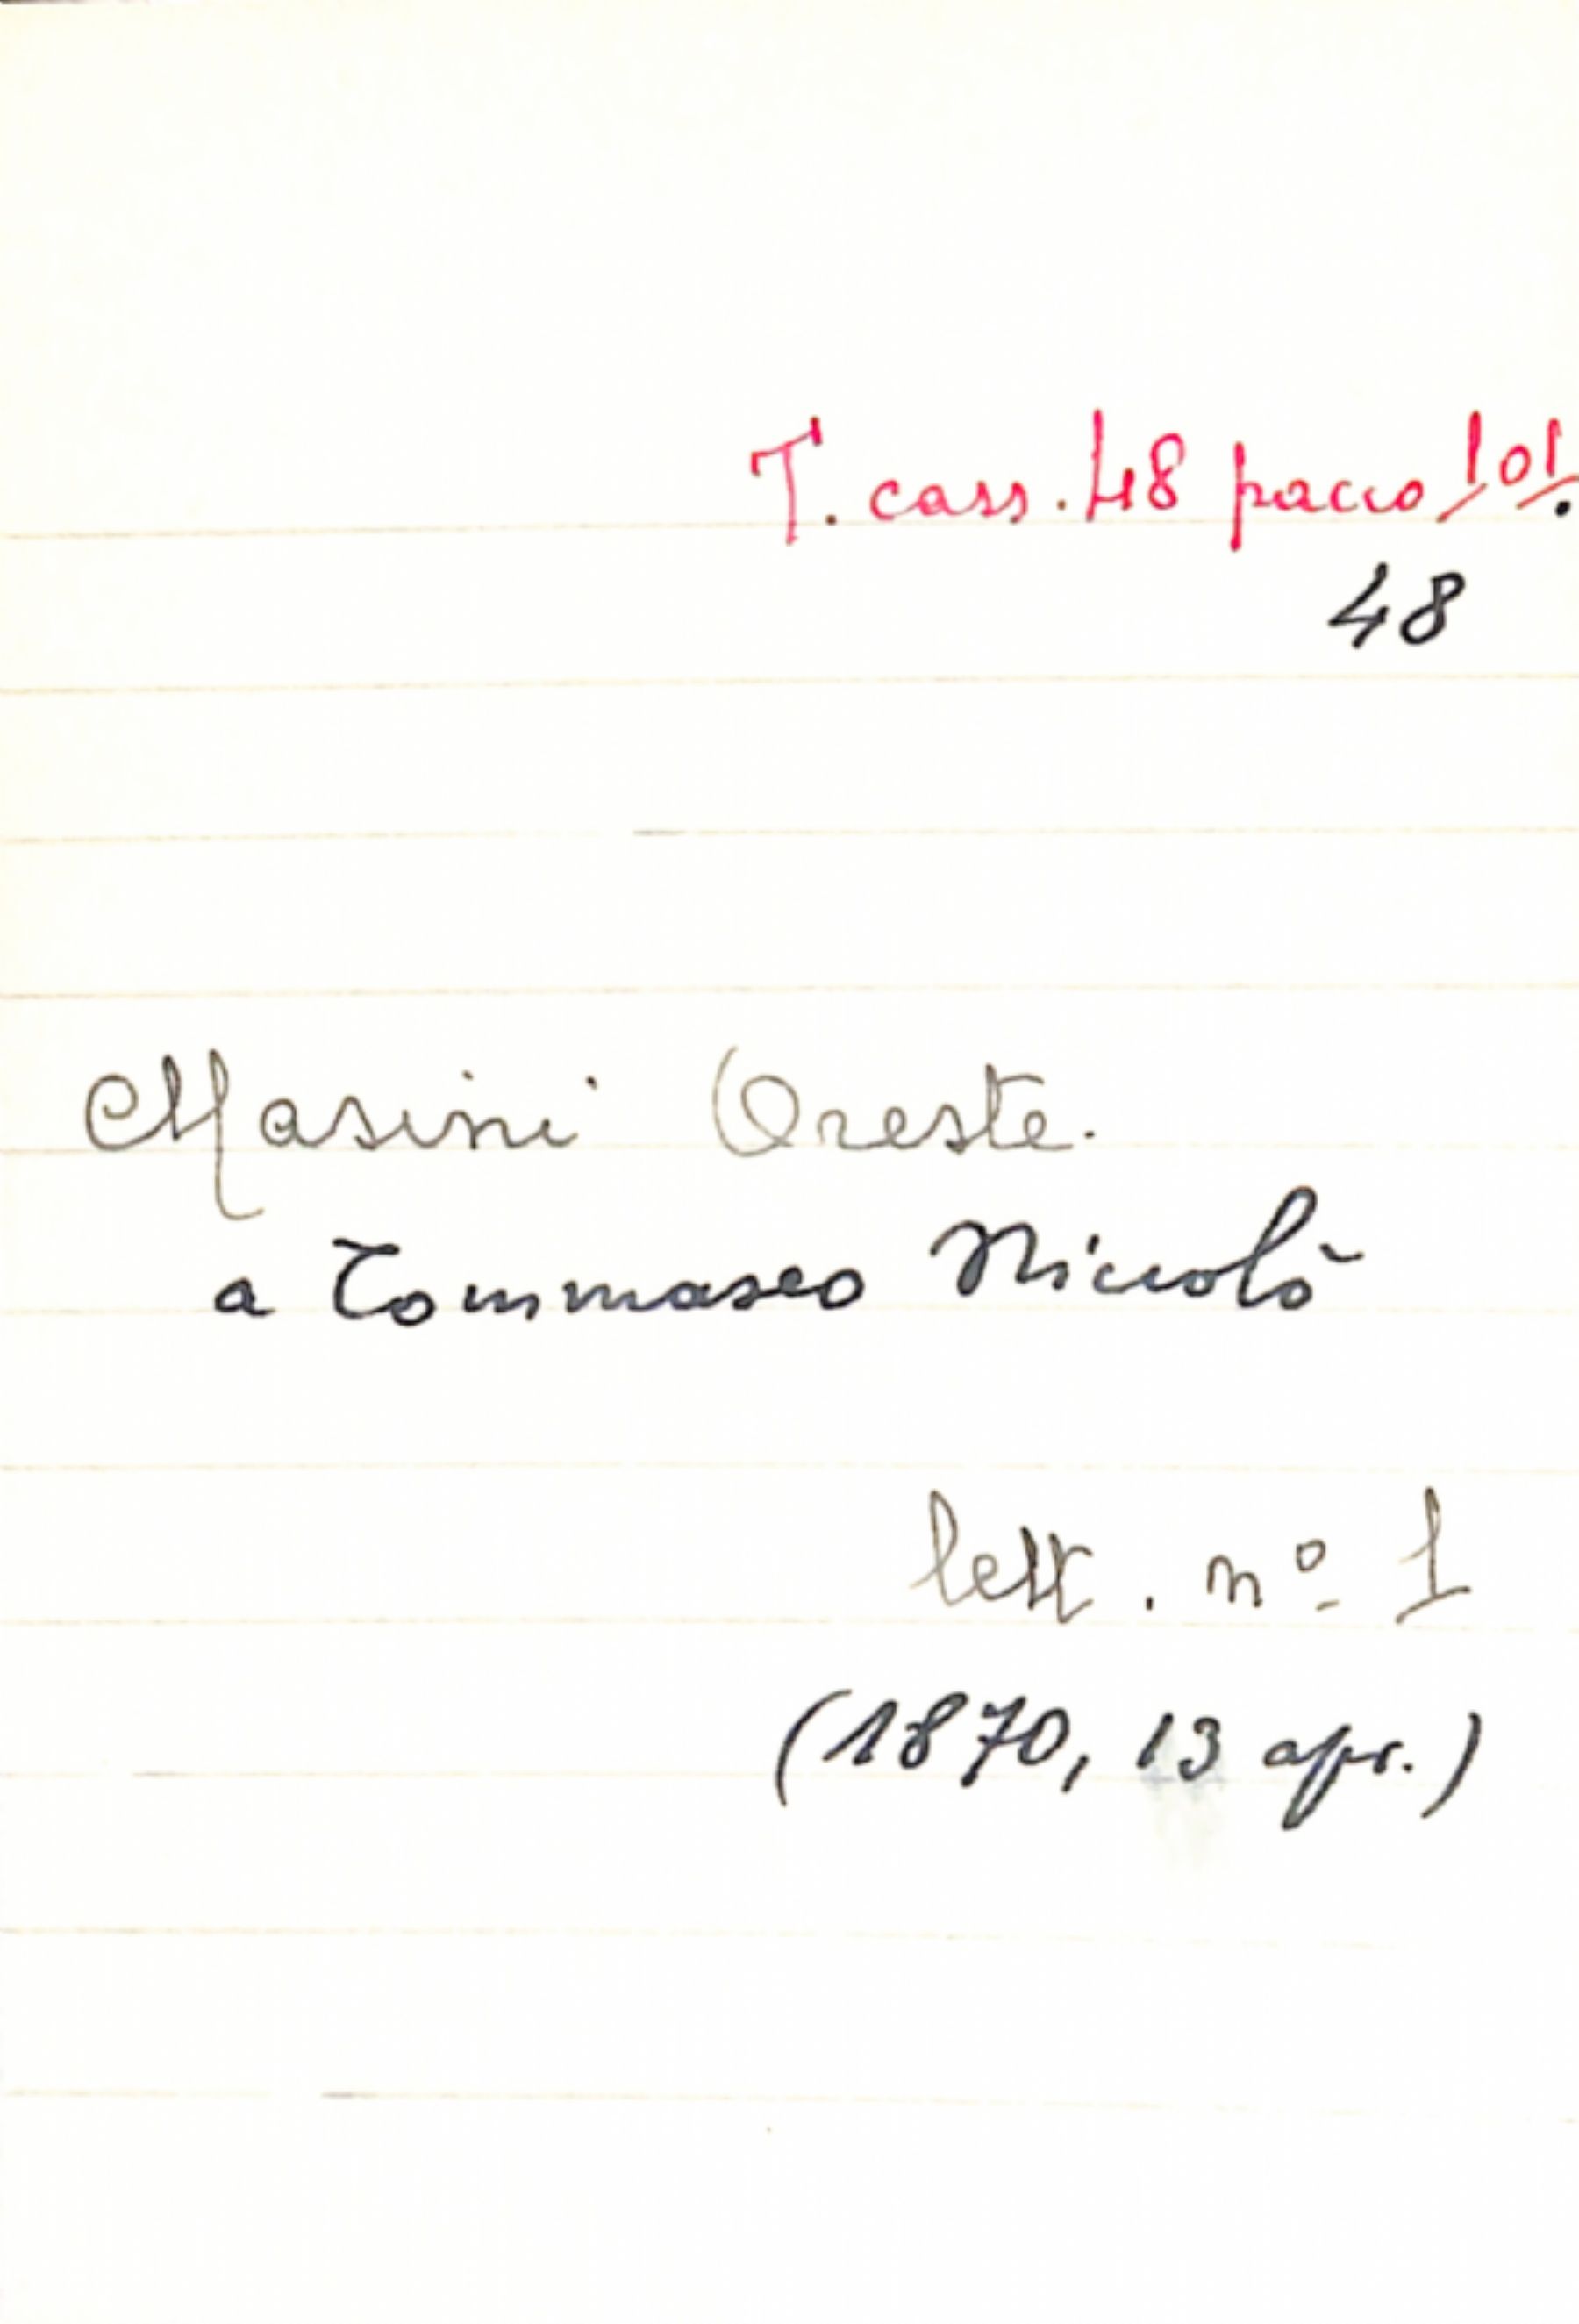 T. cass. 48 pacco 101.
48
Masini Oreste.
a Tommaseo Niccolò
lett. nº 1
(1870, 13 apr.)